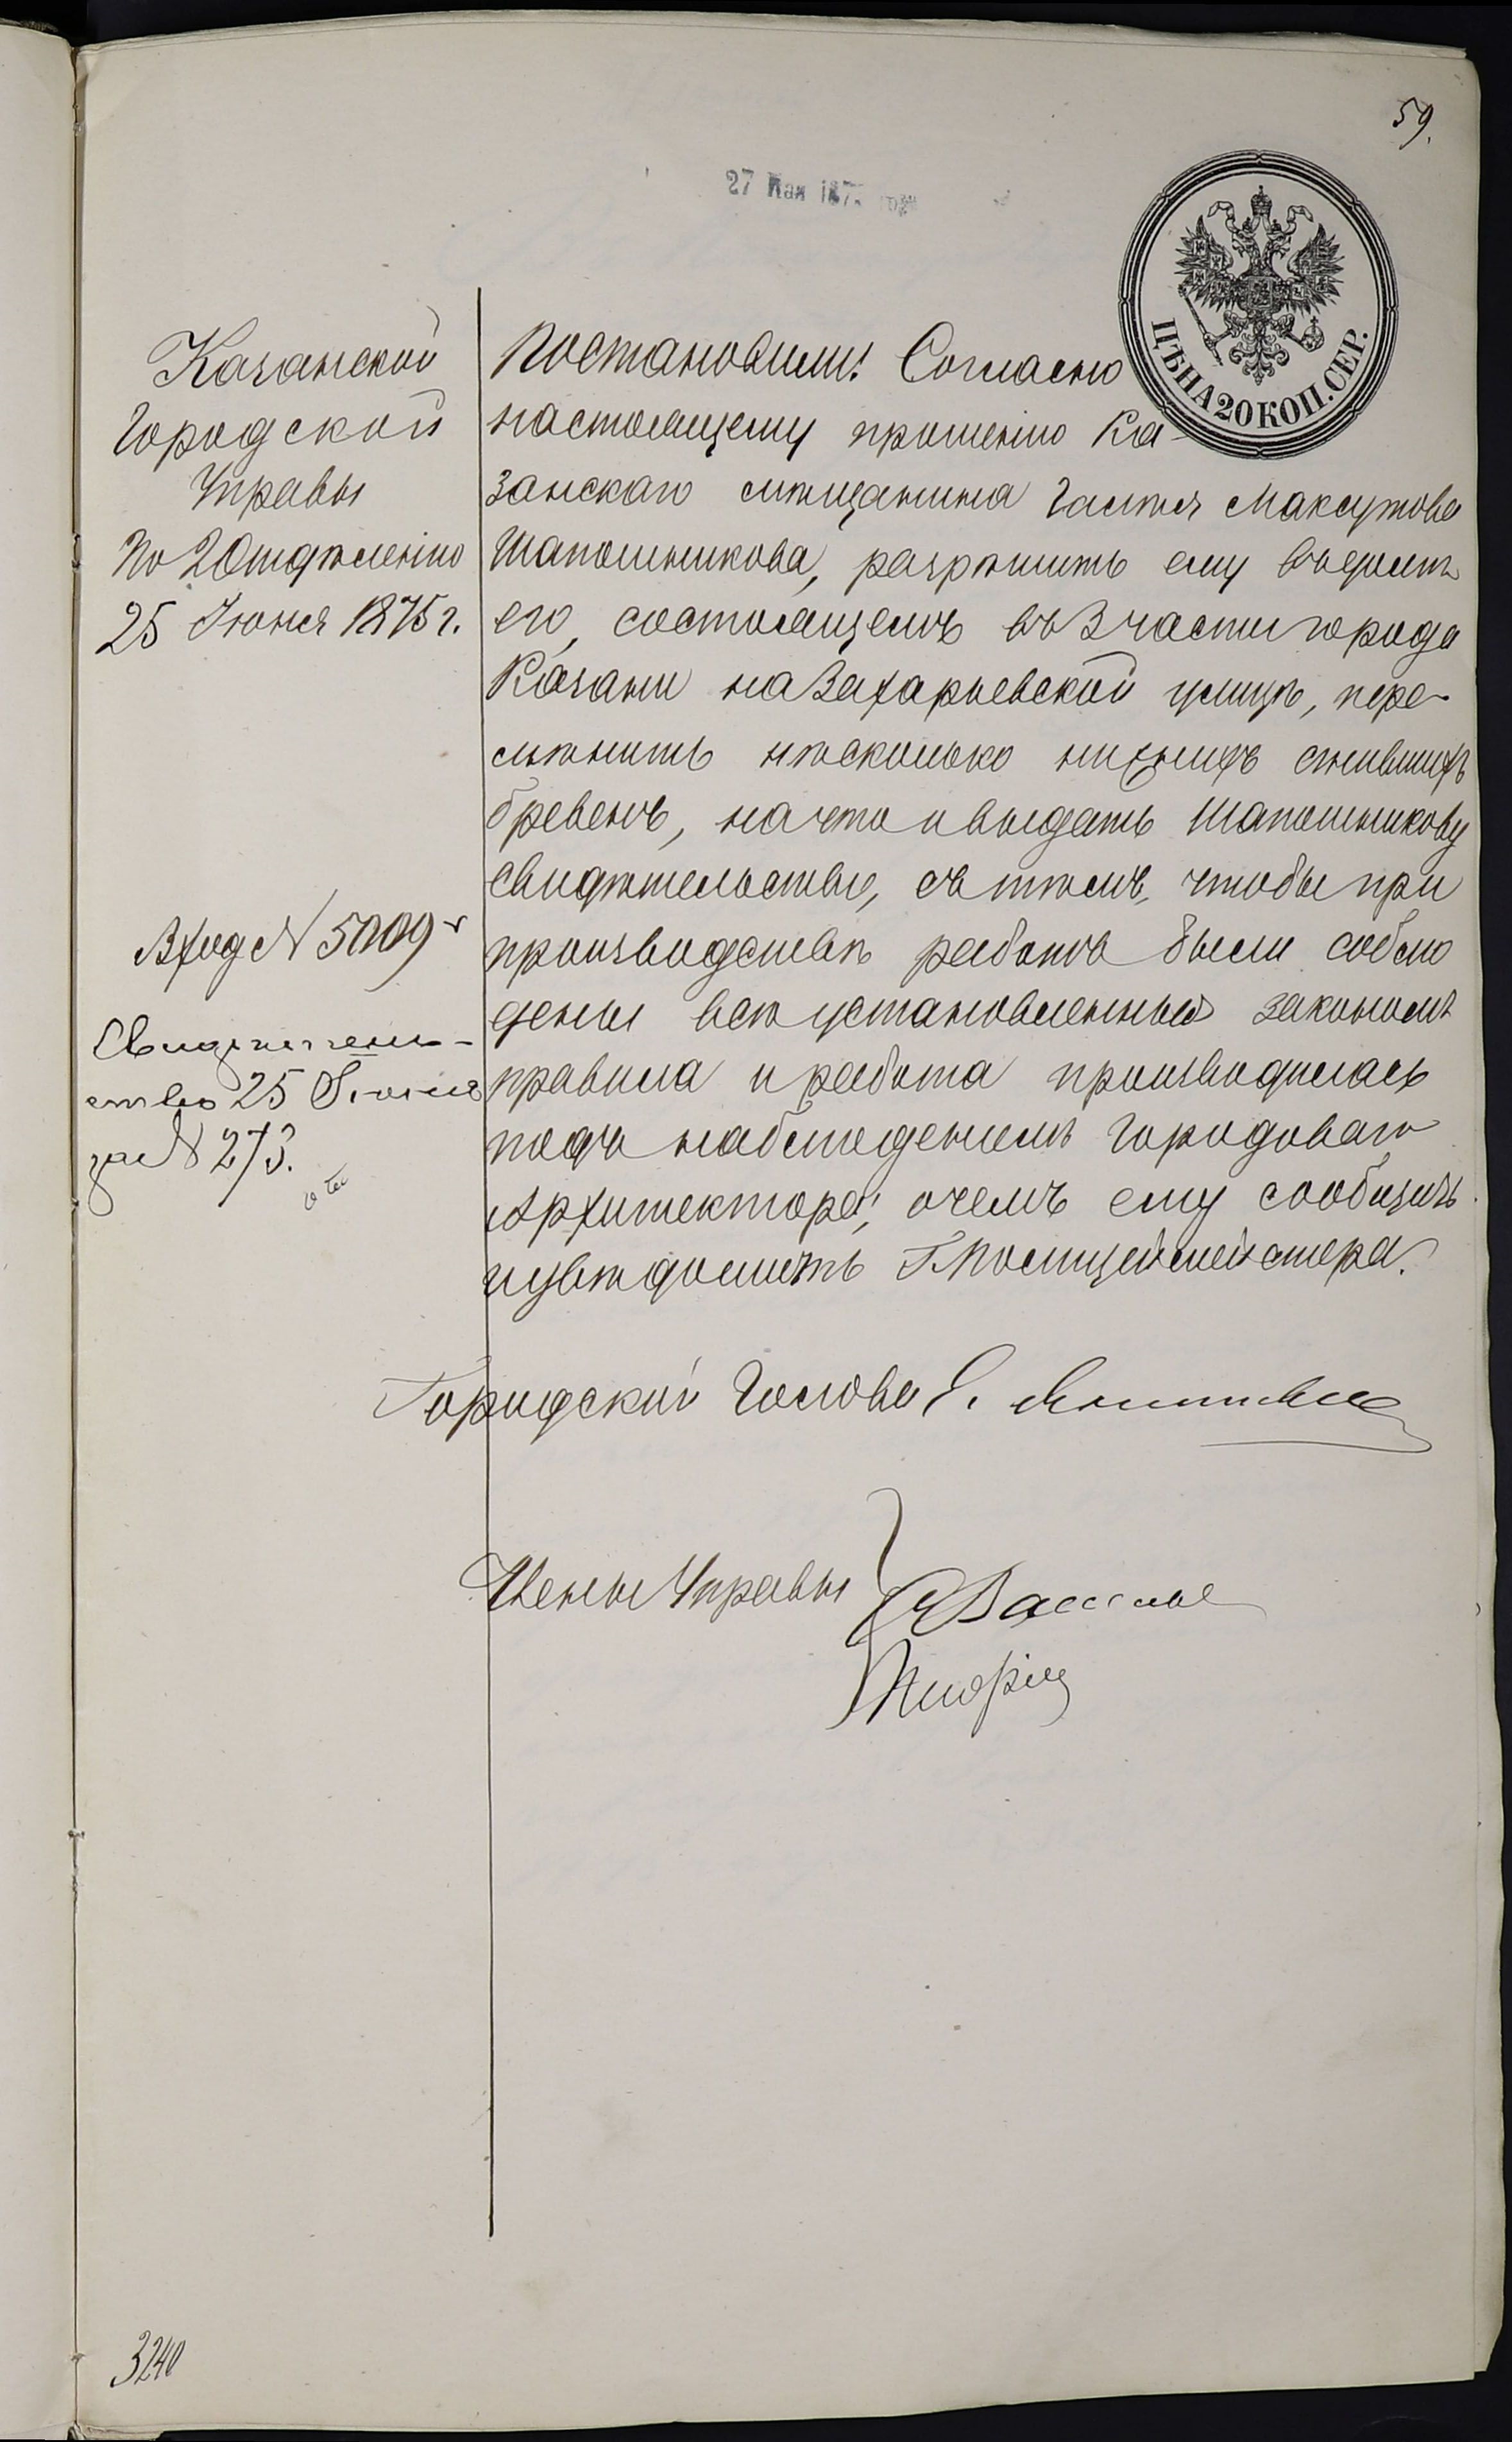 59.
27 Мая 187
ЦѢНА 20 КОП. СЕР.
Казанской
Городской
Управы
По 2 Отдѣленію
25 Июня 1875 г.
Вход № 5009
Свидѣтель-
ство 25 Июня
за № 273.
Постановили: Согласно
настоящему прошенію Ка-
занскаго мѣщанина Галѣя Максутова
Шапошникова, разрѣшить ему въ домѣ
его, состоящемъ въ 3 части города
Казани на Захарьевской улицѣ, пере-
мѣнить нѣсколько нижнихъ сгнившихъ
бревенъ, на что и выдать Шапошникову
свидѣтельство, съ тѣмъ, чтобы при
производствѣ работъ были соблю
дены всѣ установленныя закономъ
правила и работа производилась
подъ наблюденіемъ Городоваго
Архитектора; о чемъ ему сообщить
и увѣдомить Г. Полицеймейстера.
Городской Голова
Члены Управы
3240